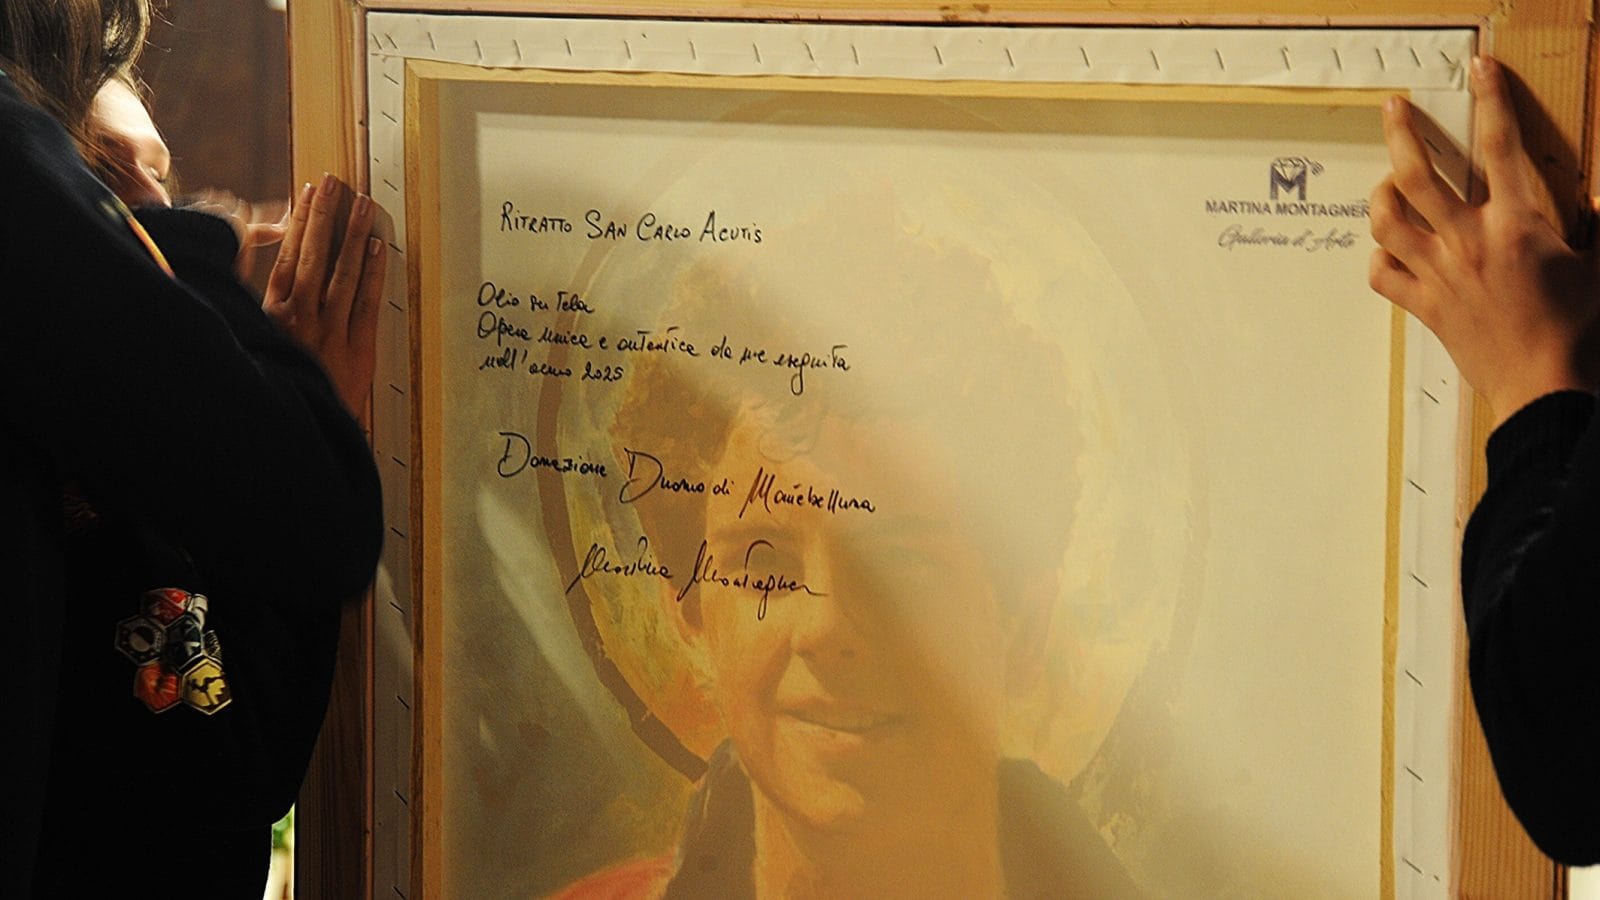 RITRATTO SAN CARLO ACUTIS
M
MARTINA MONTAGNER
Galleria d'Arte
Olio su tela
Opera unica e autentica da me eseguita
nell'anno 2025
Donazione Duomo di Montebelluna
Martina Montagner